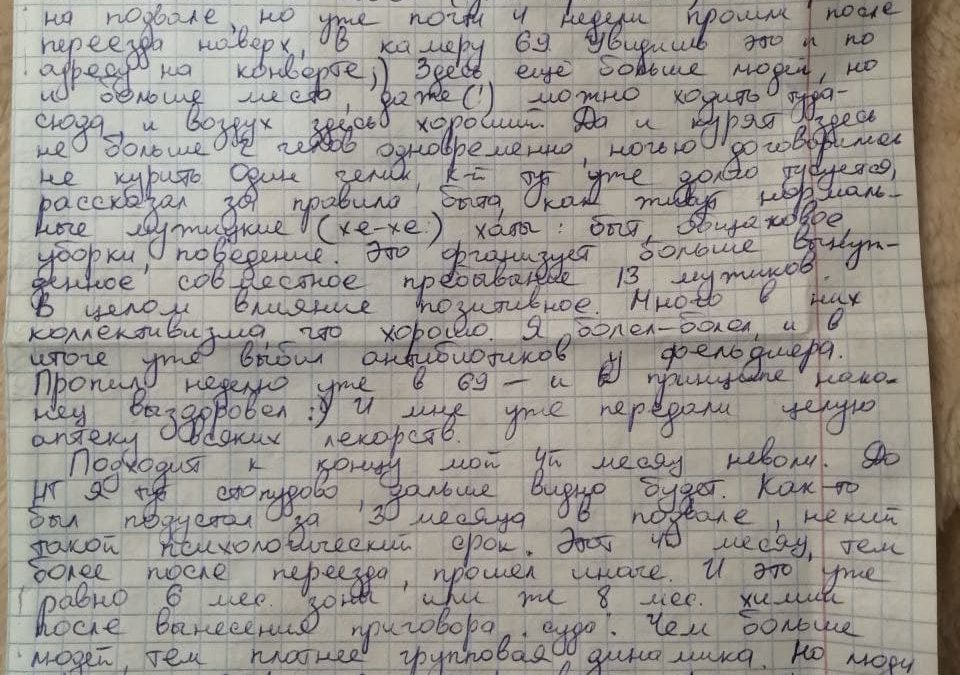 на подвале, но уже почти 4 недели прошли после
переезда наверх, в камеру 69. Увидишь это и по
адресу на конверте;) Здесь ещё больше людей, но
и больше места, даже (!) можно ходить туда-
сюда, и воздух здесь хороший. Да и курят здесь
не больше 2 челов одновременно, ночью договорились
не курить. Один челик, к-й тут уже долго тусуется,
рассказал за правила быта, как живут нормаль-
ные мужицкие (хе-хе:) хаты: быт, общаковое,
уборки, поведение. Это организует больше вынуж-
денное совместное пребывание 13 мужиков.
В целом влияние позитивное. Много в них
коллективизма, что хорошо. Я болел-болел, и в
итоге уже выбил антибиотиков у фельдшера.
Пропил неделю уже в 69 — и в принципе нако-
нец выздоровел :) И мне уже передали целую
аптеку всяких лекарств.
Подходит к концу мой 4й месяц неволи. До
НГ я тут стопудово, дальше видно будет. Как-то
был подустал за 3 месяца в подвале, некий
такой психологический срок. Этот 4й месяц, тем
более после переезда, прошел иначе. И это уже
равно 6 мес. зоны или же 8 мес. химии
после вынесения приговора суда. Чем больше
людей, тем плотнее групповая динамика. Но люди